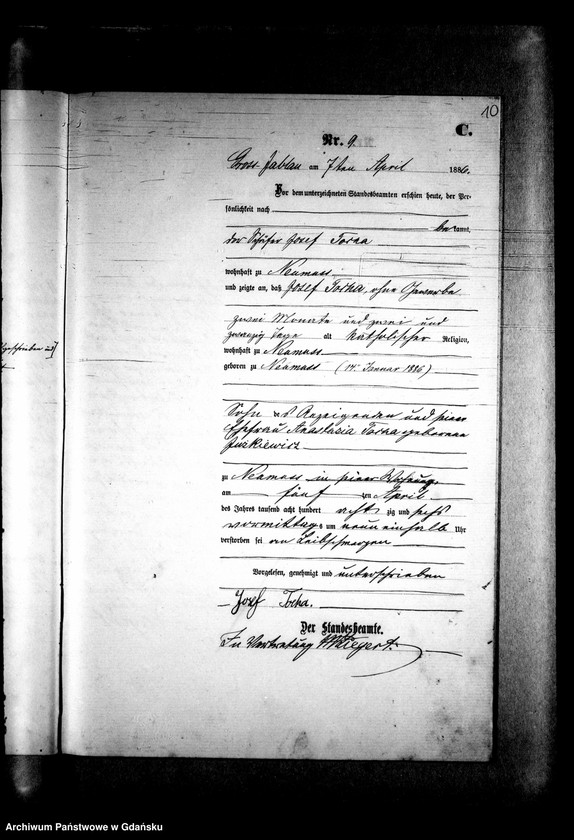 10
C.
Nr. 9.
Gross Jablau am 7ten April 1886.
Vor dem unterzeichneten Standesbeamten erschien heute, der Per-
sönlichkeit nach
be kannt,
der Schäfer Josef Torha
wohnhaft zu Neumass
und zeigte an, daß Josef Torha, ohne Gewerbe
zwei Monate und zwei und
zwanzig Tage alt katholischer Religion,
wohnhaft zu Neumass
geboren zu Neumass (14. Januar 1886)
Sohn des Anzeigenden und seiner
Ehefrau Anastasia Torha geborenen
zu Neumass in seiner Wohnung
am fünf ten April
des Jahres tausend acht hundert acht zig und sechs
vormittags um neun einhalb Uhr
verstorben sei an Leibschmerzen
Vorgelesen, genehmigt und unterschrieben
Josef Torha.
Der Standesbeamte.
In Vertretung
geschrieben und
Archiwum Państwowe w Gdańsku